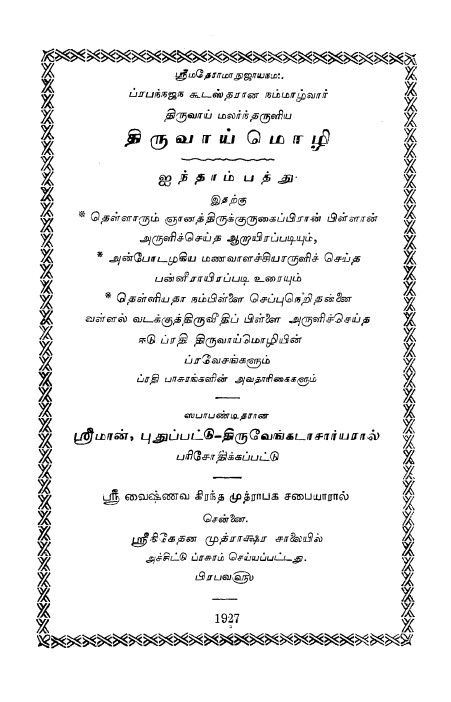 ஸ்ரீமதேராமாநுஜாயநம:.
ப்ரபந்நஜந கூடஸ்தரான நம்மாழ்வார்
திருவாய் மலர்ந்தருளிய
திருவாய்மொழி
ஐந்தாம்பத்து.
இதற்கு
* தெள்ளாரும் ஞானத்திருக்குருகைப்பிரான் பிள்ளான்
அருளிச்செய்த ஆறாயிரப்படியும்,
* அன்போடழகிய மணவாளச்சீயாருளிச் செய்த
பன்னீராயிரப்படி உரையும்
* தெள்ளியதா நம்பிள்ளை செப்புநெறிதன்னை
வள்ளல் வடக்குத்திருவீதிப் பிள்ளை அருளிச்செய்த
ஈடு ப்ரதி திருவாய்மொழியின்
ப்ரவேசங்களும்
ப்ரதி பாசுரங்களின் அவதாரிகைகளும்
ஸபாபண்டிதரான
ஸ்ரீமான், புதுப்பட்டு-திருவேங்கடாசார்யரால்
பரிசோதிக்கப்பட்டு
ஸ்ரீ வைஷ்ணவ கிரந்த முத்ராபக சபையாரால்
சென்னை.
ஸ்ரீநிகேதன முத்ராக்ஷர சாலையில்
அச்சிட்டு ப்ரசுரம் செய்யப்பட்டது.
பிரபவ௵
1927